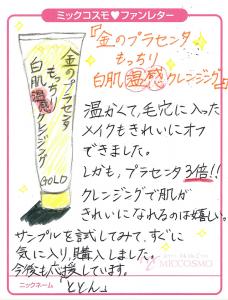 ミックコスモ♥ファンレター
『金のプラセンタ
もっちり
白肌温感クレンジング』
金のプラセンタ
もっちり
白肌温感クレンジング
GOLD
温かくて、毛穴に入った
メイクもきれいにオフ
できました。
しかも、プラセンタ3倍!!
クレンジングで肌が
きれいになれるのは嬉しい。
サンプルを試してみて、すぐに
気に入り、購入しました。
今後も応援しています。
MICCOSMO
ニックネーム 「ととん」